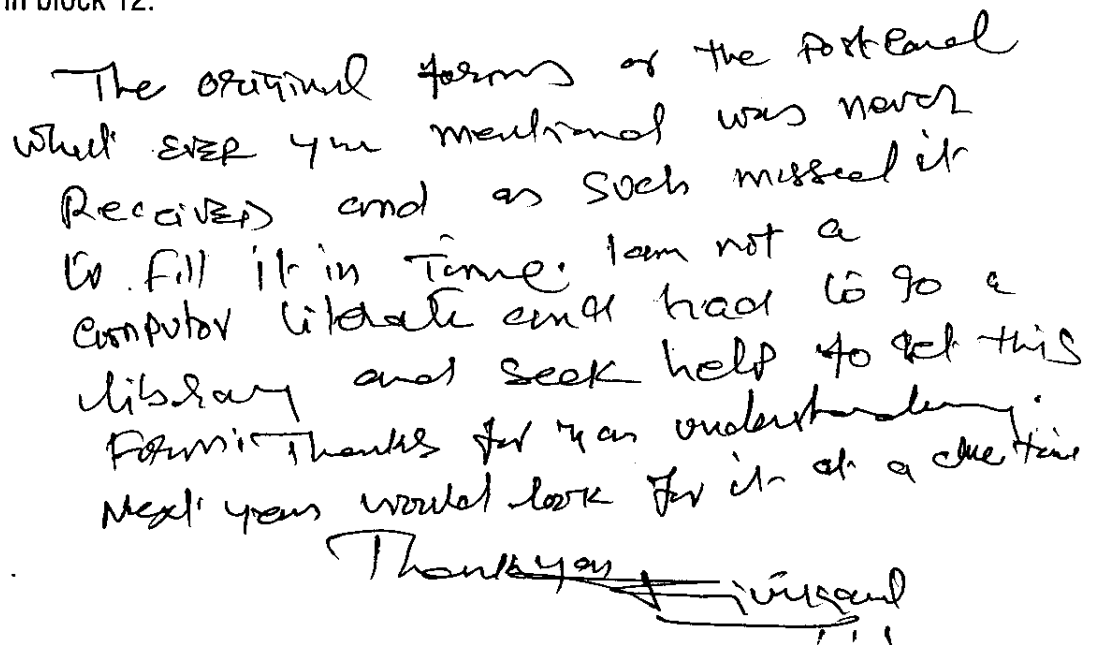 in block 12.
The original forms or the Post Card
what ever you mentioned was never
Received and as such missed it
to fill it in Time. I am not a
computor literate and had to go a
library and seek help to get this
Form. Thanks for your understanding.
Next year would look for it at a due time
Thank you